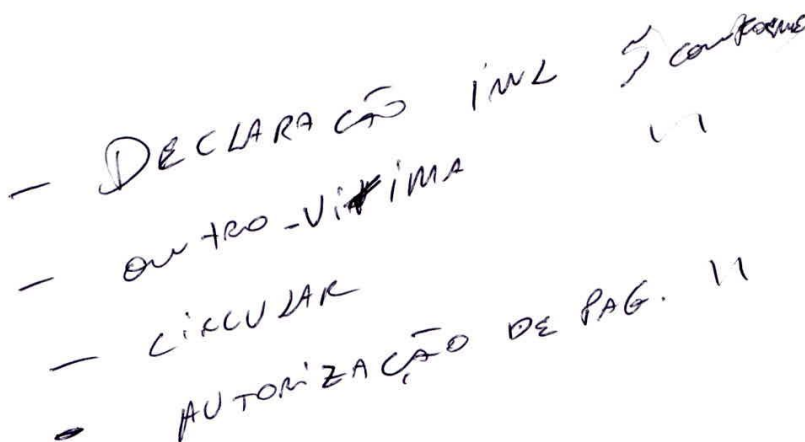 - DECLARAÇÃO IML ñ conforme
- OUTRO - VÍTIMA 11
- CIRCULAR
- AUTORIZAÇÃO DE PAG. 11